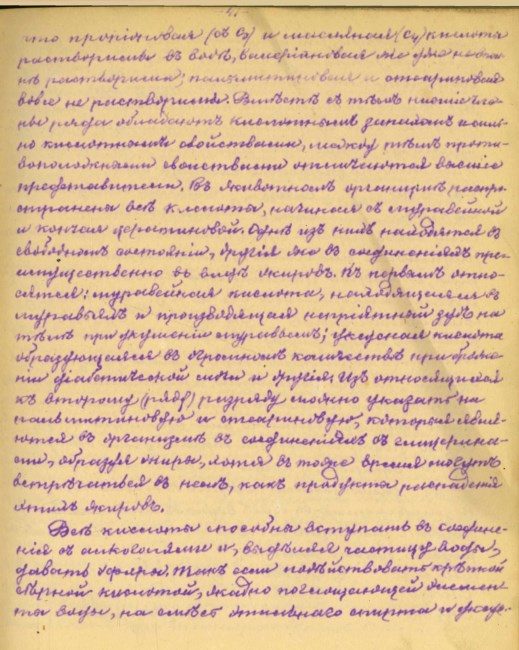 -4-
что пропіоновая (съ C3) и масляная (C4) кислота
растворимы въ водѣ, валеріановая же уже не
растворима; пальмитиновая и стеариновая
вовсе не растворимы. Вмѣстѣ съ тѣмъ низшіе чле-
ны ряда обладаютъ кислотнымъ запахомъ и силь-
но кислотными свойствами, между тѣмъ проти-
воположными свойствами отличаются высшіе
представители. Въ животномъ организмѣ распро-
странены всѣ кислоты, начиная съ муравейной
и кончая церотиновой. Однѣ изъ нихъ находятся въ
свободномъ состояніи, другія же въ соединеніяхъ пре-
имущественно въ видѣ жировъ. Къ первымъ отно-
сятся: муравейная кислота, находящаяся въ
муравьяхъ и производящая непріятный зудъ на
тѣлѣ при укушеніи муравьемъ; уксусная кислота
образующаяся въ огромномъ количествѣ при броже-
ніи діабетической мочи и другія. Изъ относящихся
къ второму (ряду) разряду можно указать на
пальмитиновую и стеариновую, которыя явля-
ются въ организмѣ въ соединеніяхъ съ глицерина-
ми, образуя жиры, хотя въ тоже время могутъ
встрѣчаться въ немъ, какъ продукта распаденія
этихъ жировъ.
Всѣ кислоты способны вступать въ соедине-
нія съ алкоголями и, выдѣляя частицу воды,
давать эфиры. Такъ если подѣйствовать крѣпкой
сѣрной кислотой, жадно поглощающей элемен-
ты воды, на смѣсь этильнаго спирта и уксус-